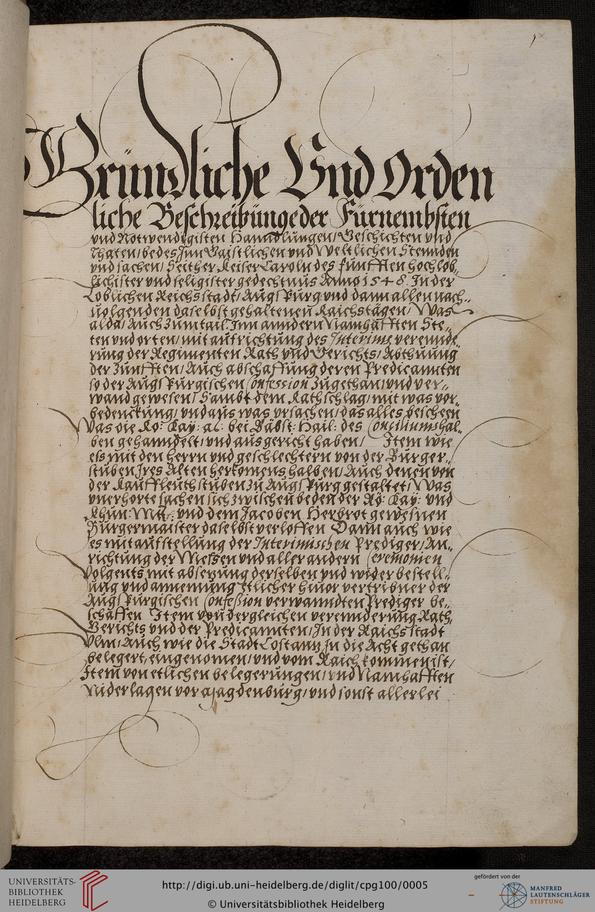 Gründliche Und Orden
liche Beschreibunge der Fürnembsten
und Nottwendigisten Hanndlungen/ Geschichten und
Thaten/ bedes Inn Gaistlichen und Weltlichen Stennden
und sachen/ Seither Keiser Caroln des funfften hochlob,,
lichister und seligister gedechtnus Anno 1548. In der
Loblichen Reichsstadt/ Augspurg und dann allen nach,,
uolgenden daselbst gehaltenen Raichstägen/ Was
alda/ Auch zum tail Inn anndern Namhafften Ste,,
ten und orten/ mit aufrichtung des Interims verennde,,
rung der Regimenten Rath und Gerichts/ Abthuung
der Zunfften/ Auch abschaffung deren Predicannten
so der Augspurgischen Confession zugethan/ und ver,,
wand gewesen/ Sambt dem Rathschlag/ mit was vor,,
bedenckung/ und aus was ursachen/ das alles bescheen
Was die Rö: Kay: al: bei Bäbst: Hail: des Conciliums hal,,
ben gehanndelt/ und ausgericht haben/ Item wie
ess mit den herrn und geschlechtern von der Burger,,
stuben/ Ires Alten herkomens halben/ Auch denen von
der Kauffleuth stuben zu Augspurg gestaltet/ Was
unerhorte sachen sich zwischen beden der Rö: Kay: und
Khün: Mtt: und dem Jacoben Herbrot gewesnen
Burgermaister daselbst verloffen Dann auch wie
es mit aufstellung der Interimischen Prediger/ An,,
richtung der Messen und aller andern Ceremonien
Volgents mit absetzung derselben und wider bestell,,
ung und annemung etlicher hieuor vertribner der
Augspurgischen Confession verwanndten Prediger be,,
schaffen Item von dergleichen verennderung Rath,
Gerichts und der Predicannten/ In der Raichsstadt
Ulm/ Auch wie die Stadt Costantz In die Acht gethan
belegert, eingenomen/ und vom Raich kommen ist/
Item von etlichen belegerungen/ und Namhafften
Niderlagen vor Magdenburg/ und sonst allerlei
UNIVERSITÄTS-
BIBLIOTHEK
HEIDELBERG
http://digi.ub.uni-heidelberg.de/diglit/cpg100/0005
© Universitätsbibliothek Heidelberg
gefördert von der
MANFRED
LAUTENSCHLÄGER
STIFTUNG